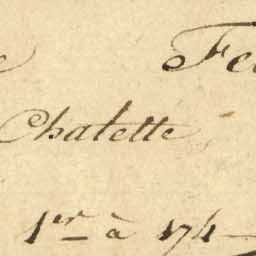 e Fe
Chalette
1er à 174